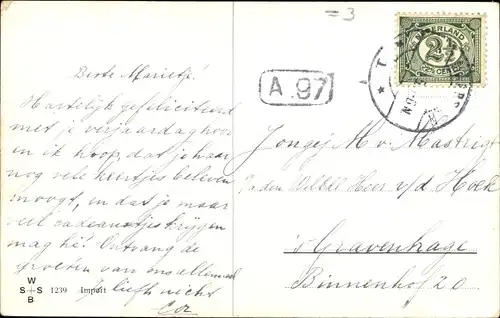 = 3
NEDERLAND
2½
CENT
T
A. 97
Beste Marietje!
Hartelijk gefeliciteerd
met je verjaardag hoor
en ik hoop, dat je haar
nog vele keertjes beleven
moogt, en dat je maar
veel cadeautjes krijgen
mag hé! Ontvang de
groeten van ons allemaal
je liefh nicht
Cor
Jongej M v. Mastrigt
p/a den Heer v/d Hoek
's Gravenhage
Binnenhof 20
W
S + S
B
1239 Import